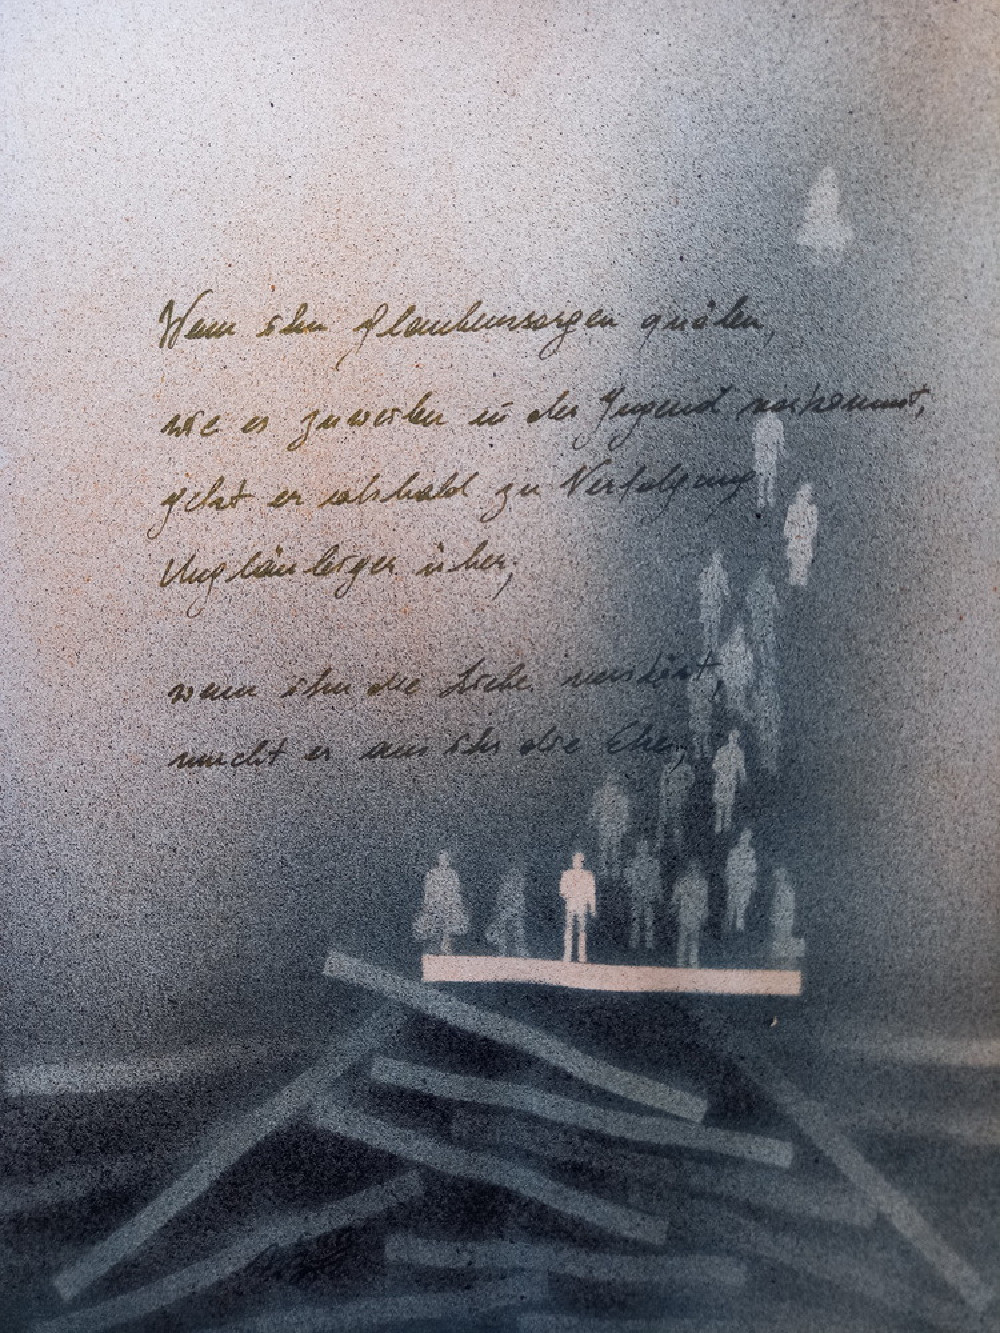 Wenn ihn Glaubenssorgen quälen,
wie es zuweilen in der Jugend vorkommt,
geht er alsbald zu Verfolgung
Ungläubiger über;
wenn ihn die Liebe verstört,
macht er aus ihr die Ehe;